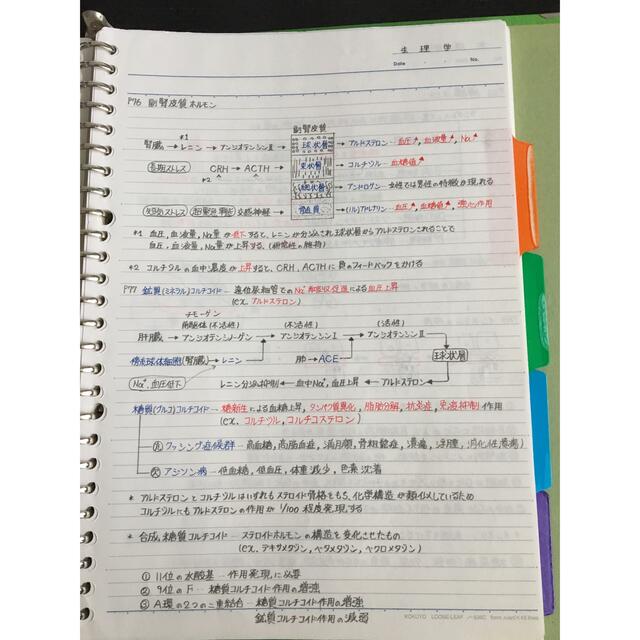 生理学
Date ・ ・ No.
P76 副腎皮質ホルモン
副腎皮質
*1
腎臓 → レニン → アンジオテンシンⅡ → 球状層 → アルドステロン … 血圧↑, 血液量↑, Na↑
長期ストレス CRH → ACTH → 束状層 → コルチゾル … 血糖値↑
*2
網状層 → アンドロゲン … 女性では男性の特徴が現れる
短期ストレス 交感神経 → 髄質 → (ノル)アドレナリン … 血圧↑, 血糖値↑, 強心作用
*1 血圧, 血液量, Na量が低下すると、レニンが分泌され球状層からアルドステロンされることで
血圧, 血液量, Na量が上昇する。(恒常性の維持)
*2 コルチゾルの血中濃度が上昇すると、CRH, ACTHに負のフィードバックをかける
P77 鉱質(ミネラル)コルチコイド … 遠位尿細管でのNa⁺再吸収促進による血圧上昇
(ex. アルドステロン)
チモーゲン
前駆体(不活性) (不活性) (活性)
肝臓 → アンジオテンシノーゲン → アンジオテンシンⅠ → アンジオテンシンⅡ
傍糸球体細胞(腎臓) → レニン 肺 → ACE 球状層
Na⁺, 血圧低下 レニン分泌抑制 ← 血中Na⁺, 血圧上昇 ← アルドステロン
糖質(グルコ)コルチコイド … 糖新生による血糖上昇, タンパク質異化, 脂肪分解, 抗炎症, 免疫抑制作用
(ex. コルチゾル, コルチコステロン)
クッシング症候群 … 高血糖, 高脂血症, 満月顔, 骨粗鬆症, 潰瘍, 浮腫, 消化性潰瘍)
アジソン病 … 低血糖, 低血圧, 体重減少, 色素沈着
* アルドステロンとコルチゾルはいずれもステロイド骨格をもち、化学構造が類似しているため
コルチゾルにもアルドステロンの作用が1/100程度発現する
* 合成糖質コルチコイド … ステロイドホルモンの構造を変化させたもの
(ex. デキサメタゾン, ベタメタゾン, ベクロメタゾン)
① 11位の水酸基 … 作用発現に必要
② 9位のF … 糖質コルチコイド作用の増強
③ A環の2つの二重結合 … 糖質コルチコイド作用の増強
鉱質コルチコイド作用の減弱
KOKUYO LOOSE-LEAF